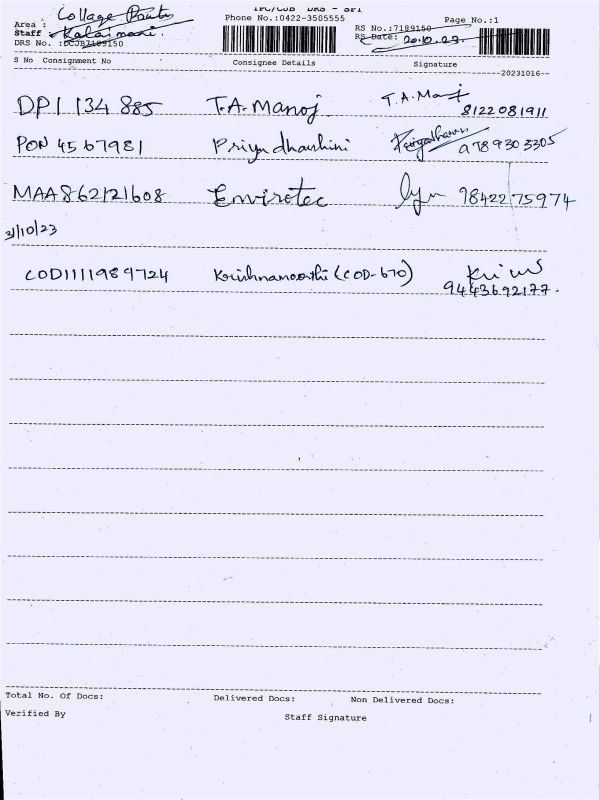 TPC/CDB DRS - SPT
Area : Collage Router
Phone No.:0422-3505555
Page No.:1
Staff : Kalaimani.
RS No.:7189150
DRS No. :DCJB7189150
RS Date: 20.10.23.
S No Consignment No Consignee Details Signature
--20231016--
DPI 134 885 T.A.Manoj T.A.Manoj
8122081911
PON 4567981 Priyadharshini 9789303305
MAA862121608 Envirotec 9842275974
3/10/23
COD1111989724 Krishnamoorthi (COD-670)
9443692177.
Total No. Of Docs: Delivered Docs: Non Delivered Docs:
Verified By Staff Signature